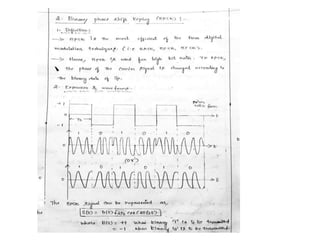 2. Binary phase shift keying (BPSK):-
1. Definition:
→ BPSK is the most efficient of the three digital
modulation techniques (i.e. BASK, BFSK, BPSK).
→ Hence, BPSK is used for high bit rates. In BPSK,
the phase of the carrier signal is changed according to
the binary state of i/p.
2. Expression & waveforms:
+1
-1
1 0 1 0 1 0
(or)
The BPSK signal can be represented as,
where b(t) = +1 when binary '1' is to be transmitted
= -1 when binary '0' is to be transmitted